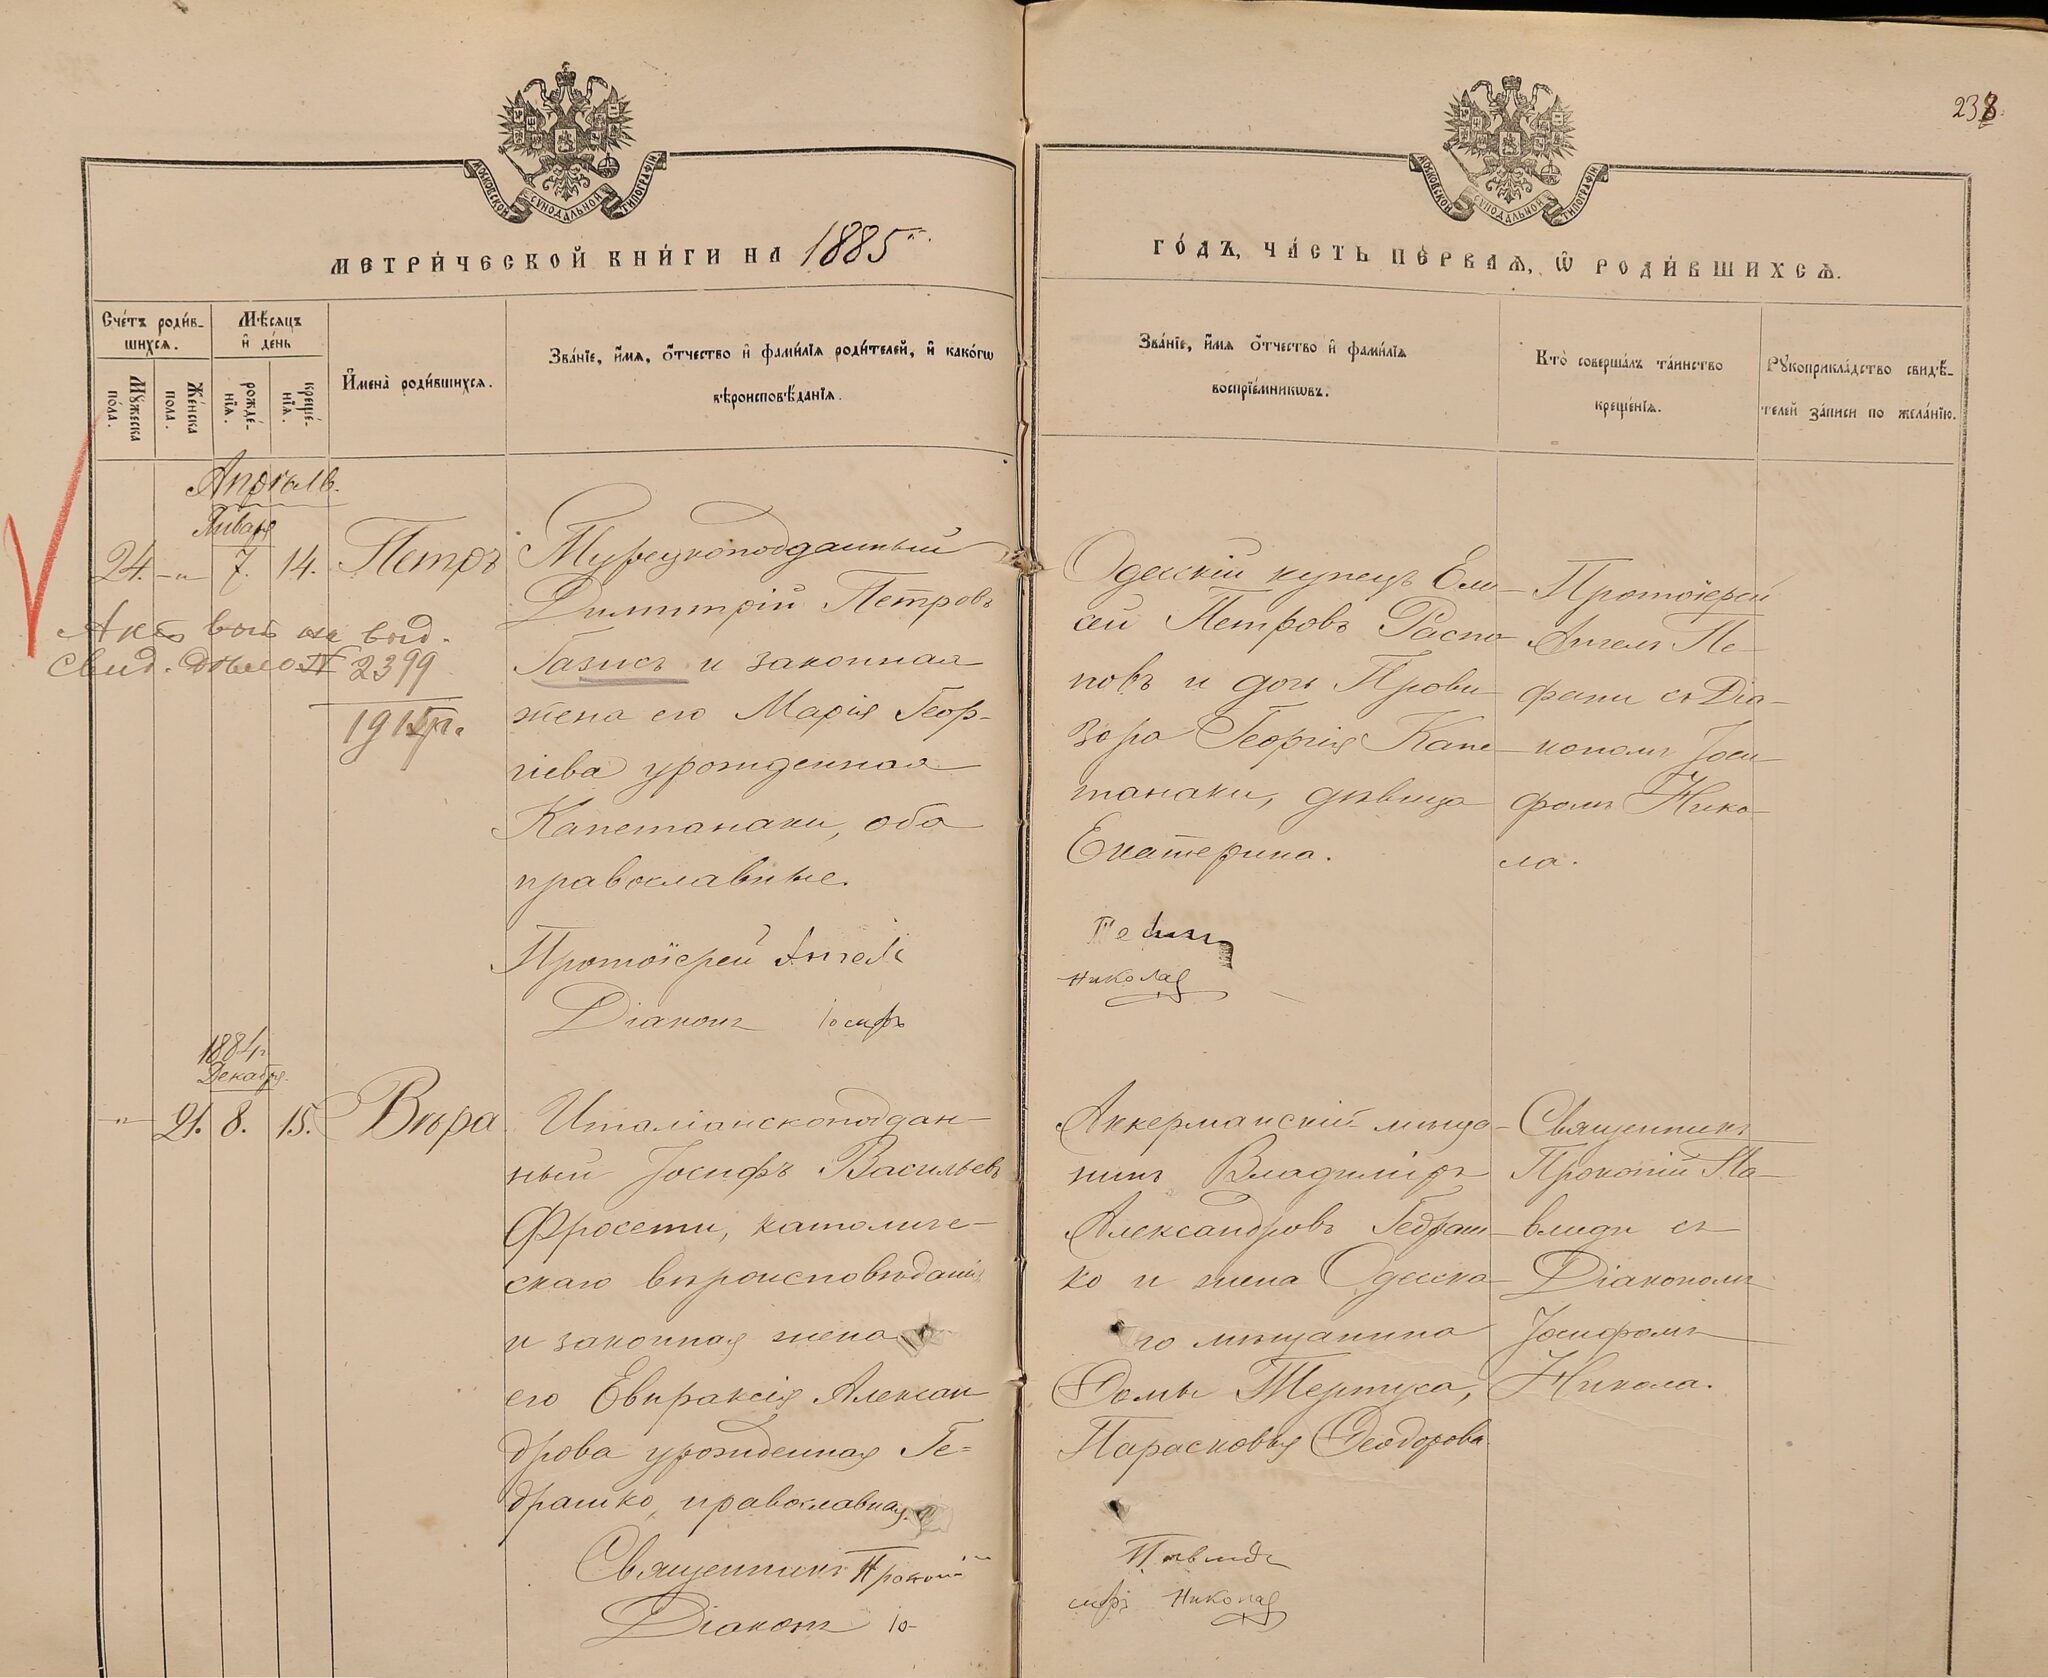 238
МОСКОВСКОЙ СУНОДАЛЬНОЙ ТИПОГРАФІИ
МОСКОВСКОЙ СУНОДАЛЬНОЙ ТИПОГРАФІИ
МЕТРИ́ЧЕСКОЙ КНИ́ГИ НА 1885
ГО́ДЪ, ЧА́СТЬ ПЕ́РВАѦ, Ѡ РОДИ́ВШИХСѦ.
Сче́тъ роди́в-
шихсѧ.
Мꙋжеска
по́ла.
Же́нска
пола.
Мѣ́сѧцъ
и҆ де́нь
рожде́-
нїѧ.
креще́-
нїѧ.
И҆мена̀ роди́вшихсѧ.
Зва́нїе, и҆́мѧ, ѻ҆́тчество и҆ фами́лїѧ роди́телей, и҆ како́гѡ
вѣроисповѣ́данїѧ.
Зва́нїе, и҆́мѧ ѻ҆́тчество и҆ фами́лїѧ
воспрїе́мникѡвъ.
Кто̀ соверша́лъ та́инство
креще́нїѧ.
Рꙋкоприкла́дство свидѣ́-
телей за́писи по жела́нїю.
Апрѣль.
Января
24. -"- 7. 14. Петръ
Турецкоподданный
Димитрій Петровъ
Газисъ и законная
жена его Марія Геор-
гіева урожденная
Капетанаки, оба
православные.
Протоіерей Ангелъ
Діаконъ Іосифъ
Одесскій купецъ Ели-
сей Петровъ Распо-
повъ и дочь Прови-
зора Георгія Капе-
танаки, дѣвица
Екатерина.
Николая
Протоіерей
Ангелъ Пе-
фани съ Діа-
кономъ Іоси-
фомъ Нико-
ла.
Актъ выд.
свид. дѣло № 2399
1884 г.
Декабря.
" 21. 8. 15. Вѣра
Италіанскоподдан-
ный Іосифъ Васильевъ
Фросети, католиче-
скаго вѣроисповѣданія
и законная жена
его Евпраксія Алексан
дрова урожденная Ге-
драшко, православная.
Священникъ Прокопій
Діаконъ Іо-
Аккерманскій мѣща-
нинъ Владиміръ
Александровъ Гедраш-
ко и жена Одесска-
го мѣщанина
Ѳомы Тертуса,
Парасковья Ѳеодорова.
Павлиди
сифъ Николая
Священникъ
Прокопій Па-
влиди съ
Діакономъ
Іосифомъ
Никола.